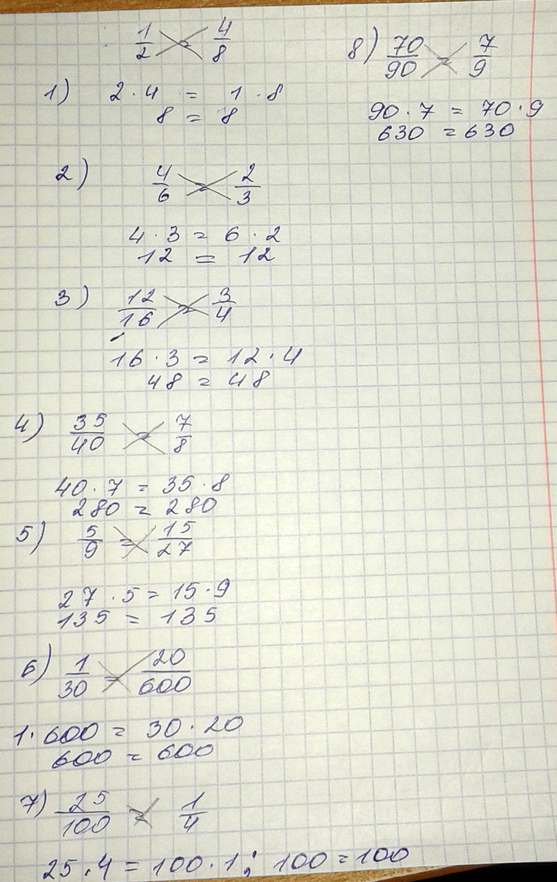 1/2 = 4/8
1) 2·4 = 1·8
8 = 8
2) 4/6 = 2/3
4·3 = 6·2
12 = 12
3) 12/16 = 3/4
16·3 = 12·4
48 = 48
4) 35/40 = 7/8
40·7 = 35·8
280 = 280
5) 5/9 = 15/27
27·5 = 15·9
135 = 135
6) 1/30 = 20/600
1·600 = 30·20
600 = 600
7) 25/100 = 1/4
25·4 = 100·1; 100 = 100
8) 70/90 = 7/9
90·7 = 70·9
630 = 630